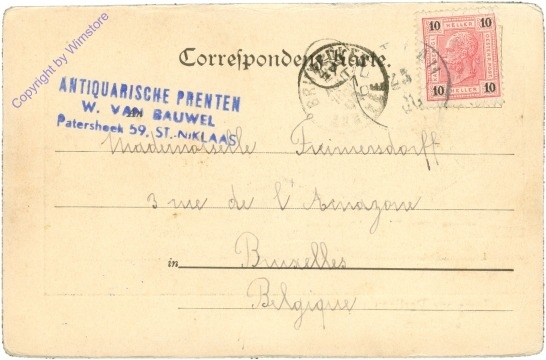 Copyright by Wimstore
Correspondenz-Karte.
10 HELLER 10
10 10
ANTIQUARISCHE PRENTEN
W. VAN BAUWEL
Patershoek 59, ST-NIKLAAS
An
Mademoiselle Freimersdorff
3 rue de l'Amazone
in Bruxelles
Belgique